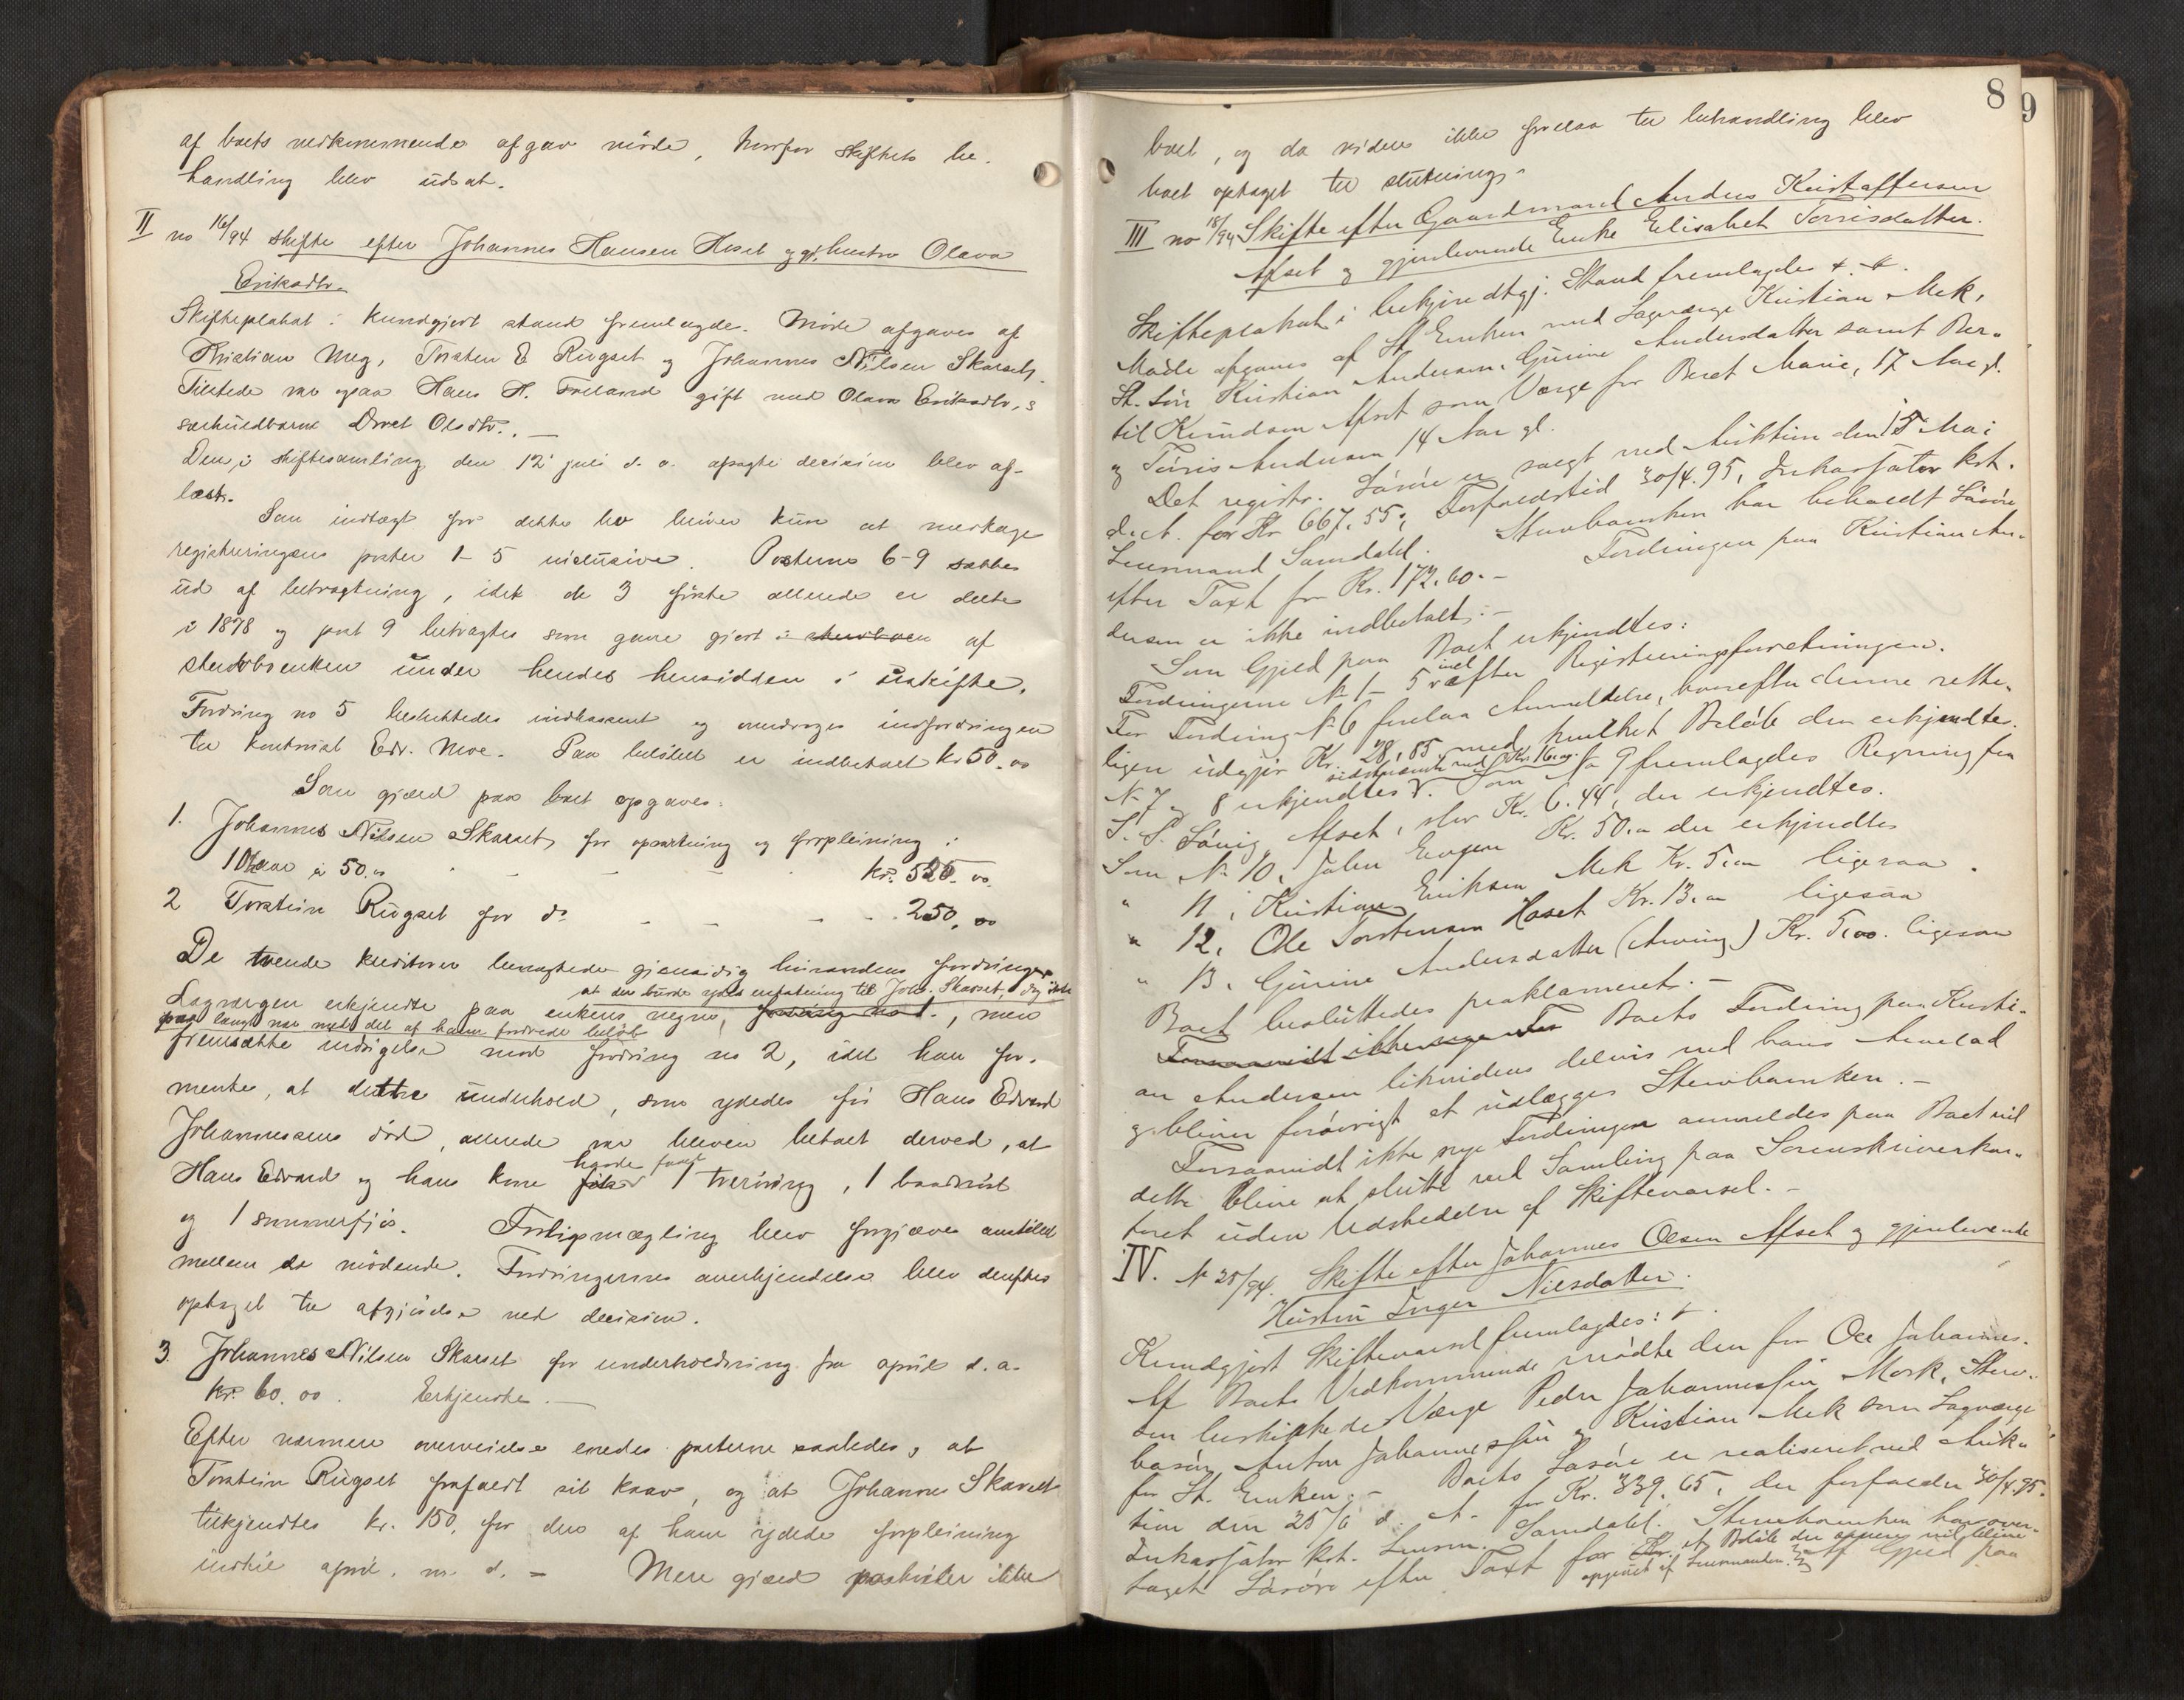 af boets vedkommende afgav möde, hvorfor skiftets be-
handling blev udsat.
II no 16/94 skifte efter Johannes Hansen Heset og gj. hustru Olava
Eriksdtr.
Skifteplakat i kundgjort stand fremlagdes. Möde afgaves af
Kristian Meg, Torsten E Rügset og Johannes Nilsen Skarset.
Tilstede var ogsaa Hans H. gift med Olava Eriksdtr,s
særkuldbarn Olsdtr. —
Den i skiftesamling den 12 juli d. a. afsagte decision blev af-
læst.
Som indtægt for dette bo bliver kun at medtage
registreringens poster 1-5 inclusive. Posterne 6-9 sættes
ud af betragtning, idet de 3 förste allerede er delte
i 1878 og post 9 betragtes som gave gjort af
sterbboenken under hendes hensidden i uskifte.
Fordring no 5 besluttedes indkasseret og overdroges indfordringen
til kontorist Edv. Moe. Paa belöbet er indbetalt kr 50.00
Som gjæld paa boet opgaves:
1. Johannes Nilsen Skarset for opvartning og forpleining i
10½ aar à 50.00 - - - kr. 525.00
2 Torstein Rügset for do - - - - 250.00
De tvende kreditorer benegtede gjensidig hinandens fordringer
at der burde ydes erstatning til Johs. Skarset, dog ikke
Lagvergen erkjendte paa enkens vegne, fordring no 1., men
paa langt nær med det af ham fordrede belöb
fremsatte indsigelse mod fordring no 2, idet han for-
mente, at dette underhold, som ydedes för Hans Edvard
Johannessens död, allerede var bleven betalt derved, at
havde faaet
Hans Edvard og hans kone fik 1 , 1 baadnöst
og 1 sommerfjös. Forligsmægling blev forgjæves anstillet
mellem de mödende. Fordringernes anerkjendelse blev derefter
optaget til afgjörelse ved decision.
3. Johannes Nilsen Skarset for underholdning fra april d. a.
kr. 60.00. Erkjendte. —
Efter nærmere overveielse enedes parterne saaledes, at
Torstein Rügset frafaldt sit krav, og at Johannes Skarset
tilkjendtes kr. 150, for den af ham ydede forpleining
indtil april. m. d. — Mere gjæld paahviler ikke
8 9
boet, og da videre ikke forelaa til behandling blev
boet optaget til slutning.
III no 18/94 Skifte efter Gaardmand Anders Kristoffersen
Afset og gjenlevende Enke Elisabet Torrisdatter.
Skifteplakat i bekjendtgj. Stand fremlagdes
Möde afgaves af St. Enken med Lagværge Kristian Mek,
St. Sön Kristian Andersen, Gurine Andersdatter samt
til Knudsen Afset som Værge for Beret Marie, 17 Aar gl.
og Torris Andersen 14 Aar gl.
Det registr. Lösöre er solgt ved Auktion den 15 Mai
d. A. for Kr 667.55; Forfaldstid 30/4. 95, Inkassator kst.
Lensmand Samdahl. Sterbboenken har beholdt Lösöre
efter Taxt for Kr. 172.60. — Fordringen paa Kristian An-
dersen er ikke indbetalt. —
Som Gjæld paa Boet erkjendtes:
Fordringerne № 1- 5 incl efter Registreringsforretningen.
For Fordring № 6 forelaa Anmeldelse, hvorefter denne rette-
ligen udgjör Kr. 28,85 med hvilket Belöb den erkjendtes.
sidstnævnte med Kr. 16.00.
№ 7 og 8 erkjendtes. Som № 9 fremlagdes Regning fra
S. S. Lövig Afset, stor Kr. 6.44, der erkjendtes.
Som № 10, John Kr. 50.00 der erkjendtes
" 11, Kristian Eriksen Mek Kr. 5.00 ligesaa
" 12, Ole Torstensen Hoset Kr. 13.00 ligesaa
" 13, Gurine Andersdatter (Arving) Kr. 5,00. ligesaa
Boet besluttedes proklameret. —
Forsaavidt ikke nye For Boets Fordring paa Kristi-
an Andersen likvideres delvis ved hans Arvelod
og bliver forövrigt at udlægges Sterbboenken. —
Forsaavidt ikke nye Fordringer anmeldes paa Boet vil
dette blive at slutte ved Samling paa Sorenskriverkon-
toret uden Udstedelse af Skiftevarsel. —
IV. № 25/94. Skifte efter Johannes Olsen Afset og gjenlevende
Hustru Inger Nilsdatter.
Kundgjort Skiftevarsel fremlagdes:
Af Boets Vedkommende mödte den for Ole Johannes-
sen beskikkede Værge Peder Johannessen Mork, Sterv-
bosön Anton Johannessen og Kristian Mek som Lagværge
for St. Enken. — Boets Lösöre er realiseret ved Auk-
tion den 25/6 d. A. for Kr. 339.65, der forfalder 30/4.95.
Inkassator kst. Lensm. Samdahl. Stervboenken har over-
taget Lösöre efter Taxt for et Belöb der senere vil blive
opgivet af Lensmanden. Af Gjæld paa